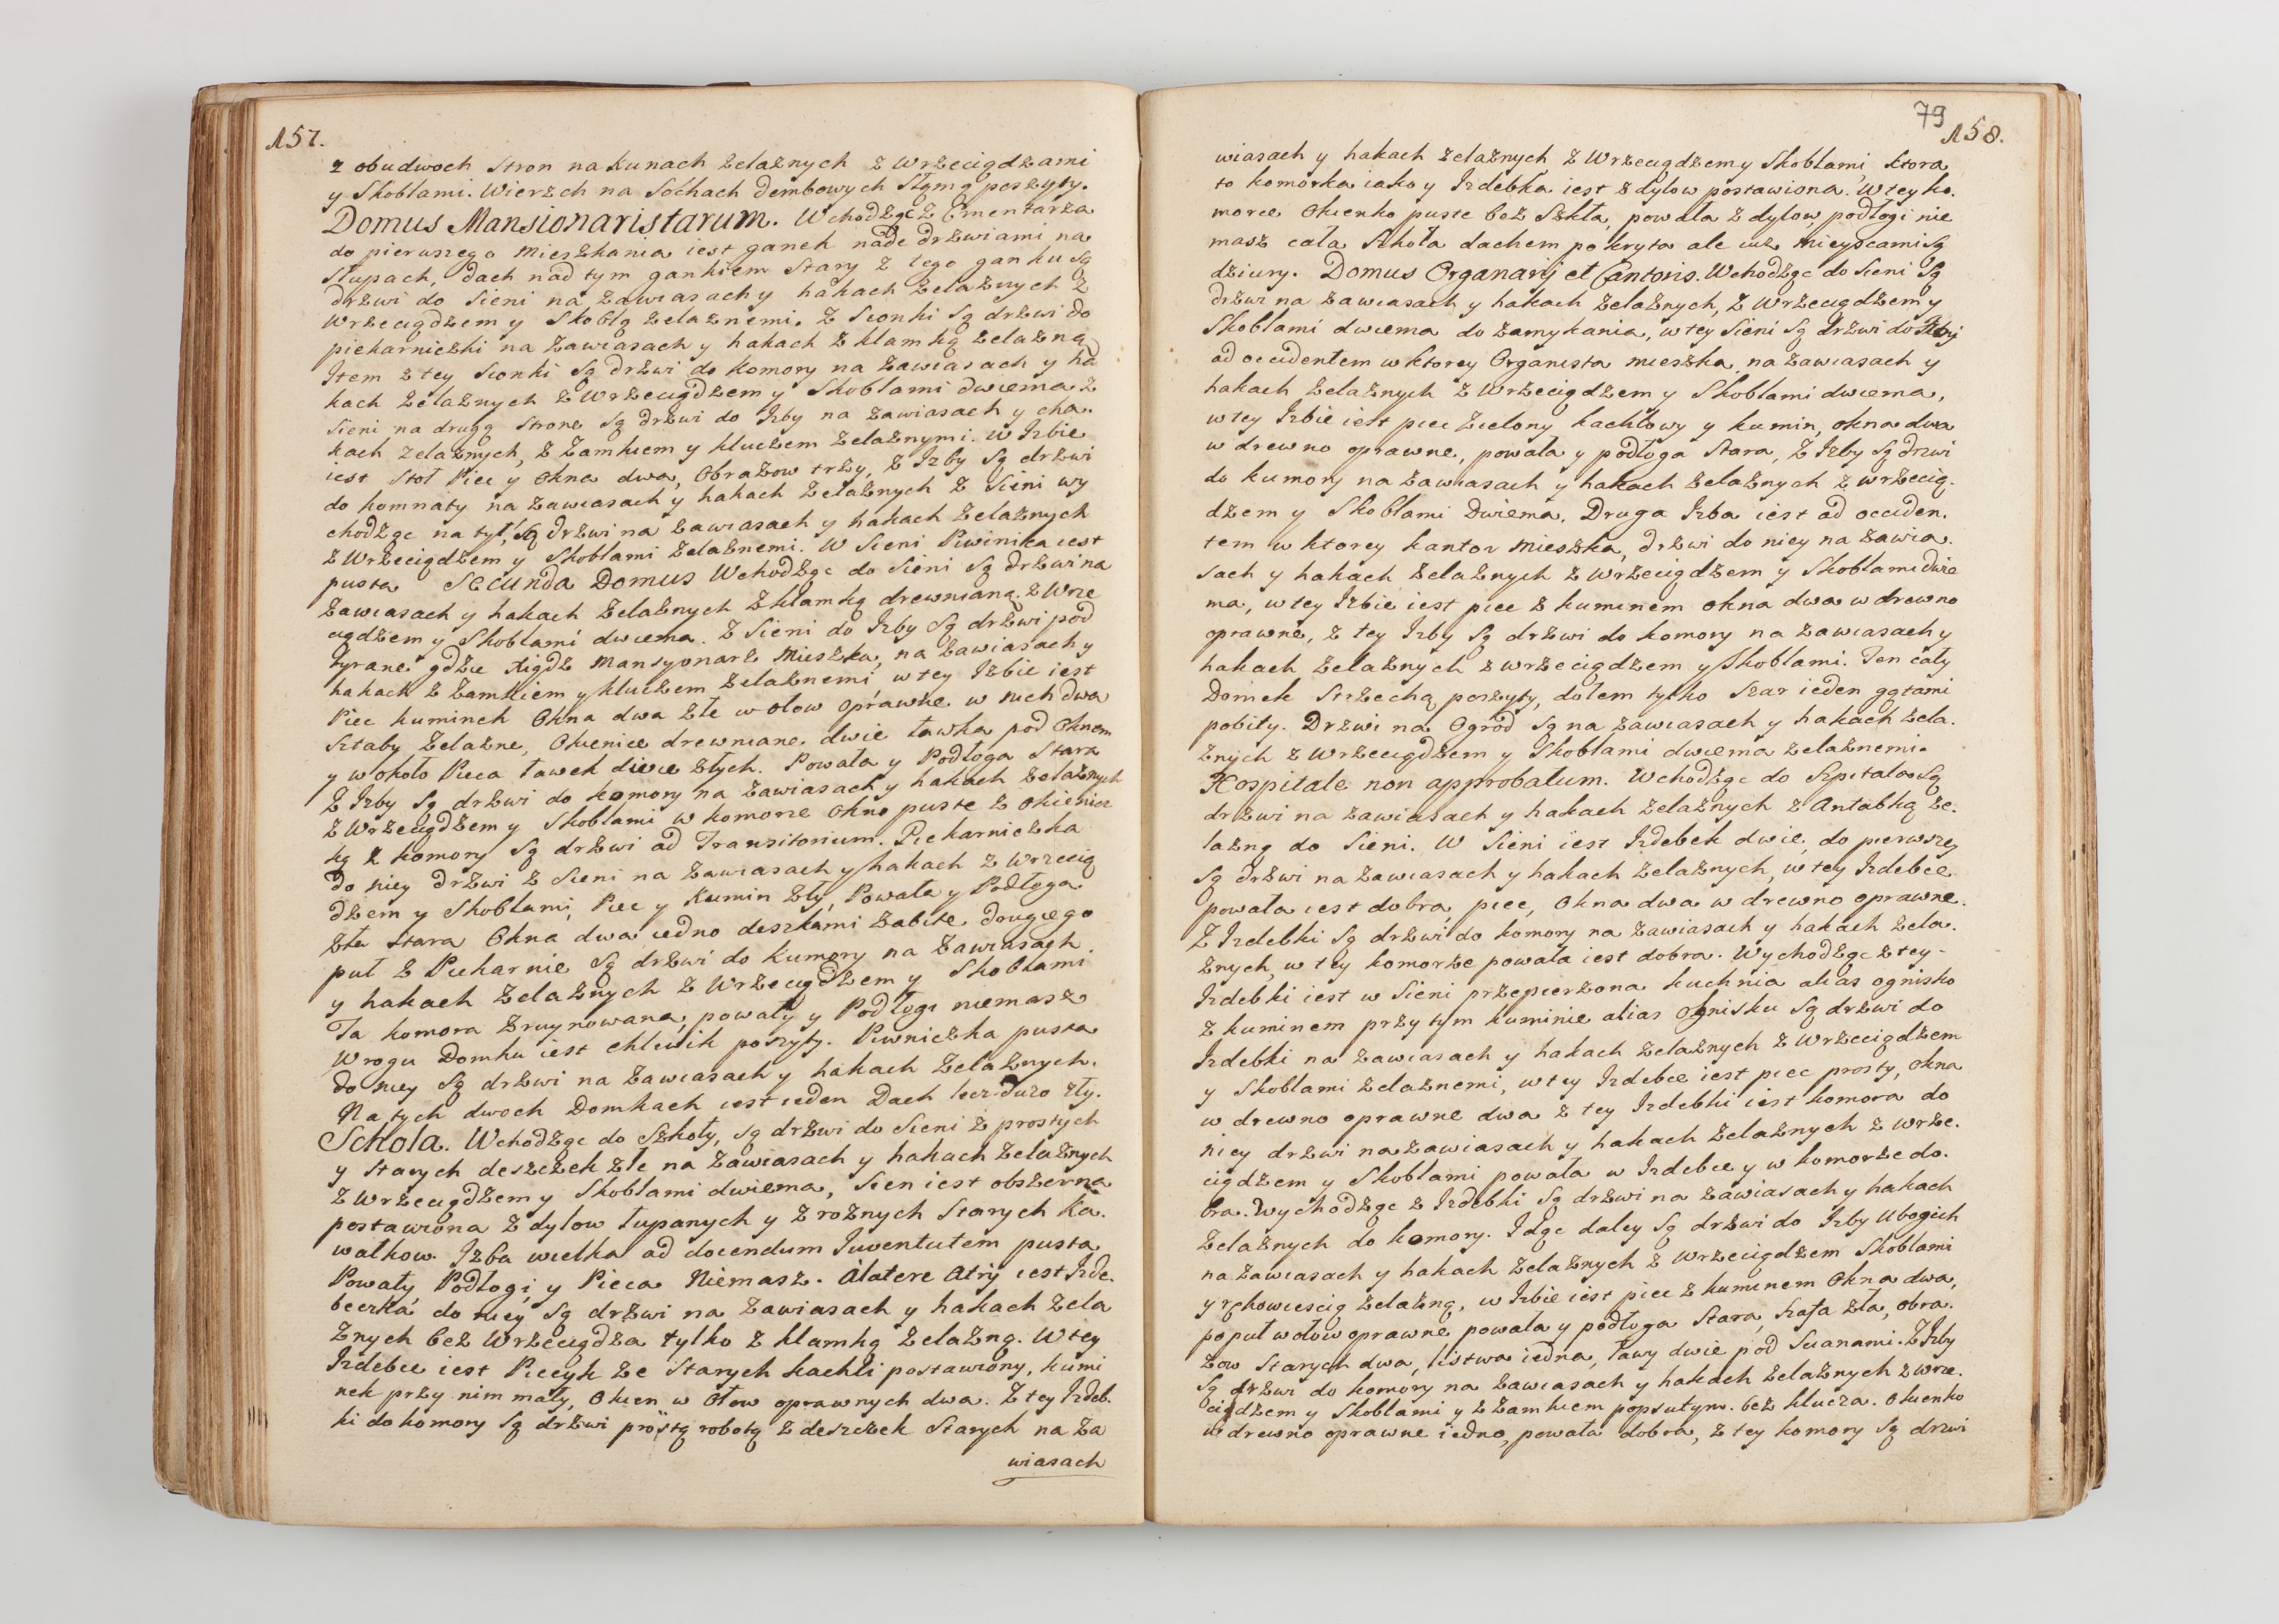 157.
z obudwoch Stron na kunach zelaznych z Wrzeciądzami
y Skoblami. Wierzch na Sochach dembowych Słomą poszyty.
Domus Mansionaristarum. Wchodząc z Cmentarza
do pierwszego Mieszkania iest ganek nade drzwiami na
Słupach, dach nad tym gankiem Stary z tego ganku są
drzwi do Sieni na zawiasach y hakach zelaznych z
Wrzeciądzem y Skoblą zelaznemi. Z Sionki Są drzwi do
piekarniczki na Zawiasach y hakach z klamką zelazną
Item z tey Sionki Są drzwi do komory na zawiasach y ha
kach zelaznych z Wrzeciądzem y Skoblami dwiema z
Sieni na drugą Strone Są drzwi do Izby na zawiasach y cha.
kach zelaznych, z Zamkiem y kluczem zelaznymi. W Izbie
iest Stoł Piec y Okna dwa, Obrazow trzy, z Izby Są drzwi
do komnaty na zawiasach y hakach zelaznych z Sieni wy
chodząc na tył, Są drzwi na zawiasach y hakach zelaznych
z Wrzeciądzem y Skoblami zelaznemi. W Sieni Piwnika iest
pusta Secunda Domus Wchodząc do Sieni Są drzwi na
zawiasach y hakach zelaznych z klamką drewnianą z Wrze
ciądzem y Skoblami dwiema. Z Sieni do Izby Są drzwi pod
tyrane gdzie Xiądz Mansyonarz Mieszka, na zawiasach y
hakach z Zamkiem y kluczem zelaznemi, w tey Izbie iest
Piec kuminek Okna dwa złe w ołow oprawne w nich dwa
Sztaby zelazne, Okienice drewniane. dwie ławka pod Oknem
y w około Pieca ławek dwie złych. Powała y Podłoga Stara
Z Izby Są drzwi do komory na zawiasach y hakach zelaznych
z Wrzeciądzem y Skoblami w komorze Okno puste z Okienicz
ką z komory Są drzwi ad Transitorium. Piekarniczka
do niey drzwi z Sieni na zawiasach y hakach z wrzecią
dzem y Skoblami, Piec y Kumin zły, Powała y Podłoga
zła Stara Okna dwa iedno deszkami zabite. drugiego
puł z Piekarnie Są drzwi do kumory na zawiasach
y hakach zelaznych z Wrzeciądzem y Skoblami
Ta komora zruynowana, powały y Podłogi niemasz
W rogu Domku iest chliwik poszyty. Piwniczka pusta
do niey Są drzwi na zawiasach y hakach zelaznych.
Na tych dwoch Domkach iest ieden Dach lecz duzo zły.
Schola. Wchodząc do Szkoły, są drzwi do Sieni z prostych
y Starych deszczek złe na zawiasach y hakach zelaznych
z Wrzeciądzem y Skoblami dwiema, Sien iest obszerna
postawiona z dylow łupanych y z roznych Starych Ka.
wałkow. Izba wielka ad docendum Iuventutem pusta
Powały, Podłogi, y Pieca Niemasz. A latere Atrij iest Izde.
beczka do niey Są drzwi na zawiasach y hakach zela
znych bez Wrzeciądza tylko z klamką zelazną. W tey
Izdebce iest Piecyk ze Starych kachli postawiony, kumi
nek przy nim mały, Okien w Ołow oprawnych dwa. Z tey Izdeb.
ki do komory Są drzwi prostą robotą z deszczek Starych na za
wiasach
79
158.
wiasach y hakach zelaznych z Wrzeciądzem y Skoblami, ktora
to komorka iako y Izdebka iest z dylow postawiona. W tey ko.
morce Okienko puste bez Szkła, powała z dylow, podłogi nie
masz cała Szkoła dachem pokryta ale iuz mieyscami Są
dziury. Domus Organarij et Cantoris. Wchodząc do Sieni Są
drzwi na zawiasach y hakach zelaznych, z Wrzeciądzem y
Skoblami dwiema do zamykania, w tey Sieni Są drzwi do Izby
ad occidentem w ktorey Organista mieszka, na zawiasach y
hakach zelaznych z Wrzeciądzem y Skoblami dwiema,
w tey Izbie iest piec zielony kachlowy y kumin, okna dwa
w drewno oprawne, powała y podłoga Stara, Z Izby Są drzwi
do kumory na zawiasach y hakach zelaznych z wrzecią.
dzem y Skoblami Dwiema. Druga Izba iest ad occiden.
tem w ktorey kantor mieszka, drzwi do niey na zawia.
sach y hakach zelaznych z wrzeciądzem y Skoblami dwie
ma, w tey Izbie iest piec z kuminem okna dwa w drewno
oprawne, z tey Izby Są drzwi do komory na zawiasach y
hakach zelaznych z wrzeciądzem y Skoblami. Ten cały
Domek Strzechą poszyty, dołem tylko Szar ieden gątami
pobity. Drzwi na Ogrod Są na zawiasach y hakach zela.
znych z Wrzeciądzem y Skoblami dwiema zelaznemi.
Hospitale non approbatum. Wchodząc do Szpitala Są
drzwi na zawiasach y hakach zelaznych z Antabką ze.
lazną do Sieni. W Sieni iest Izdebek dwie, do pierwszey
Są drzwi na zawiasach y hakach zelaznych, w tey Izdebce
powała iest dobra, piec, Okna dwa w drewno oprawne.
Z Izdebki Są drzwi do komory na zawiasach y hakach zela.
znych, w tey komorze powała iest dobra. Wychodząc z tey
Izdebki iest w Sieni przepierzona kuchnia alias ognisko
z kuminem przy tym kuminie alias Ognisku Są drzwi do
Izdebki na zawiasach y hakach zelaznych z Wrzeciądzem
y Skoblami zelaznemi, w tey Izdebce iest piec prosty, okna
w drewno oprawne dwa z tey Izdebki iest komora do
niey drzwi na zawiasach y hakach zelaznych z wrze.
ciądzem y Skoblami powała w Izdebce y w komorze do.
bra. Wychodząc z Izdebki Są drzwi na zawiasach y hakach
zelaznych do komory. Idąc daley Są drzwi do Izby Ubogich
na zawiasach y hakach zelaznych z Wrzeciądzem Skoblami
y rękowieścią zelazną, w Izbie iest piec z kuminem Okna dwa,
po puł w ołow oprawne powała y podłoga Stara, Szafa zła, obra.
zow Starych dwa, listwa iedna, ławy dwie pod Scianami. Z Izby
Są drzwi do komory na zawiasach y hakach zelaznych z wrze.
ciądzem y Skoblami y z Zamkiem popsutym. bez klucza. Okienko
w drewno oprawne iedno, powała dobra, z tey komory Są drzwi